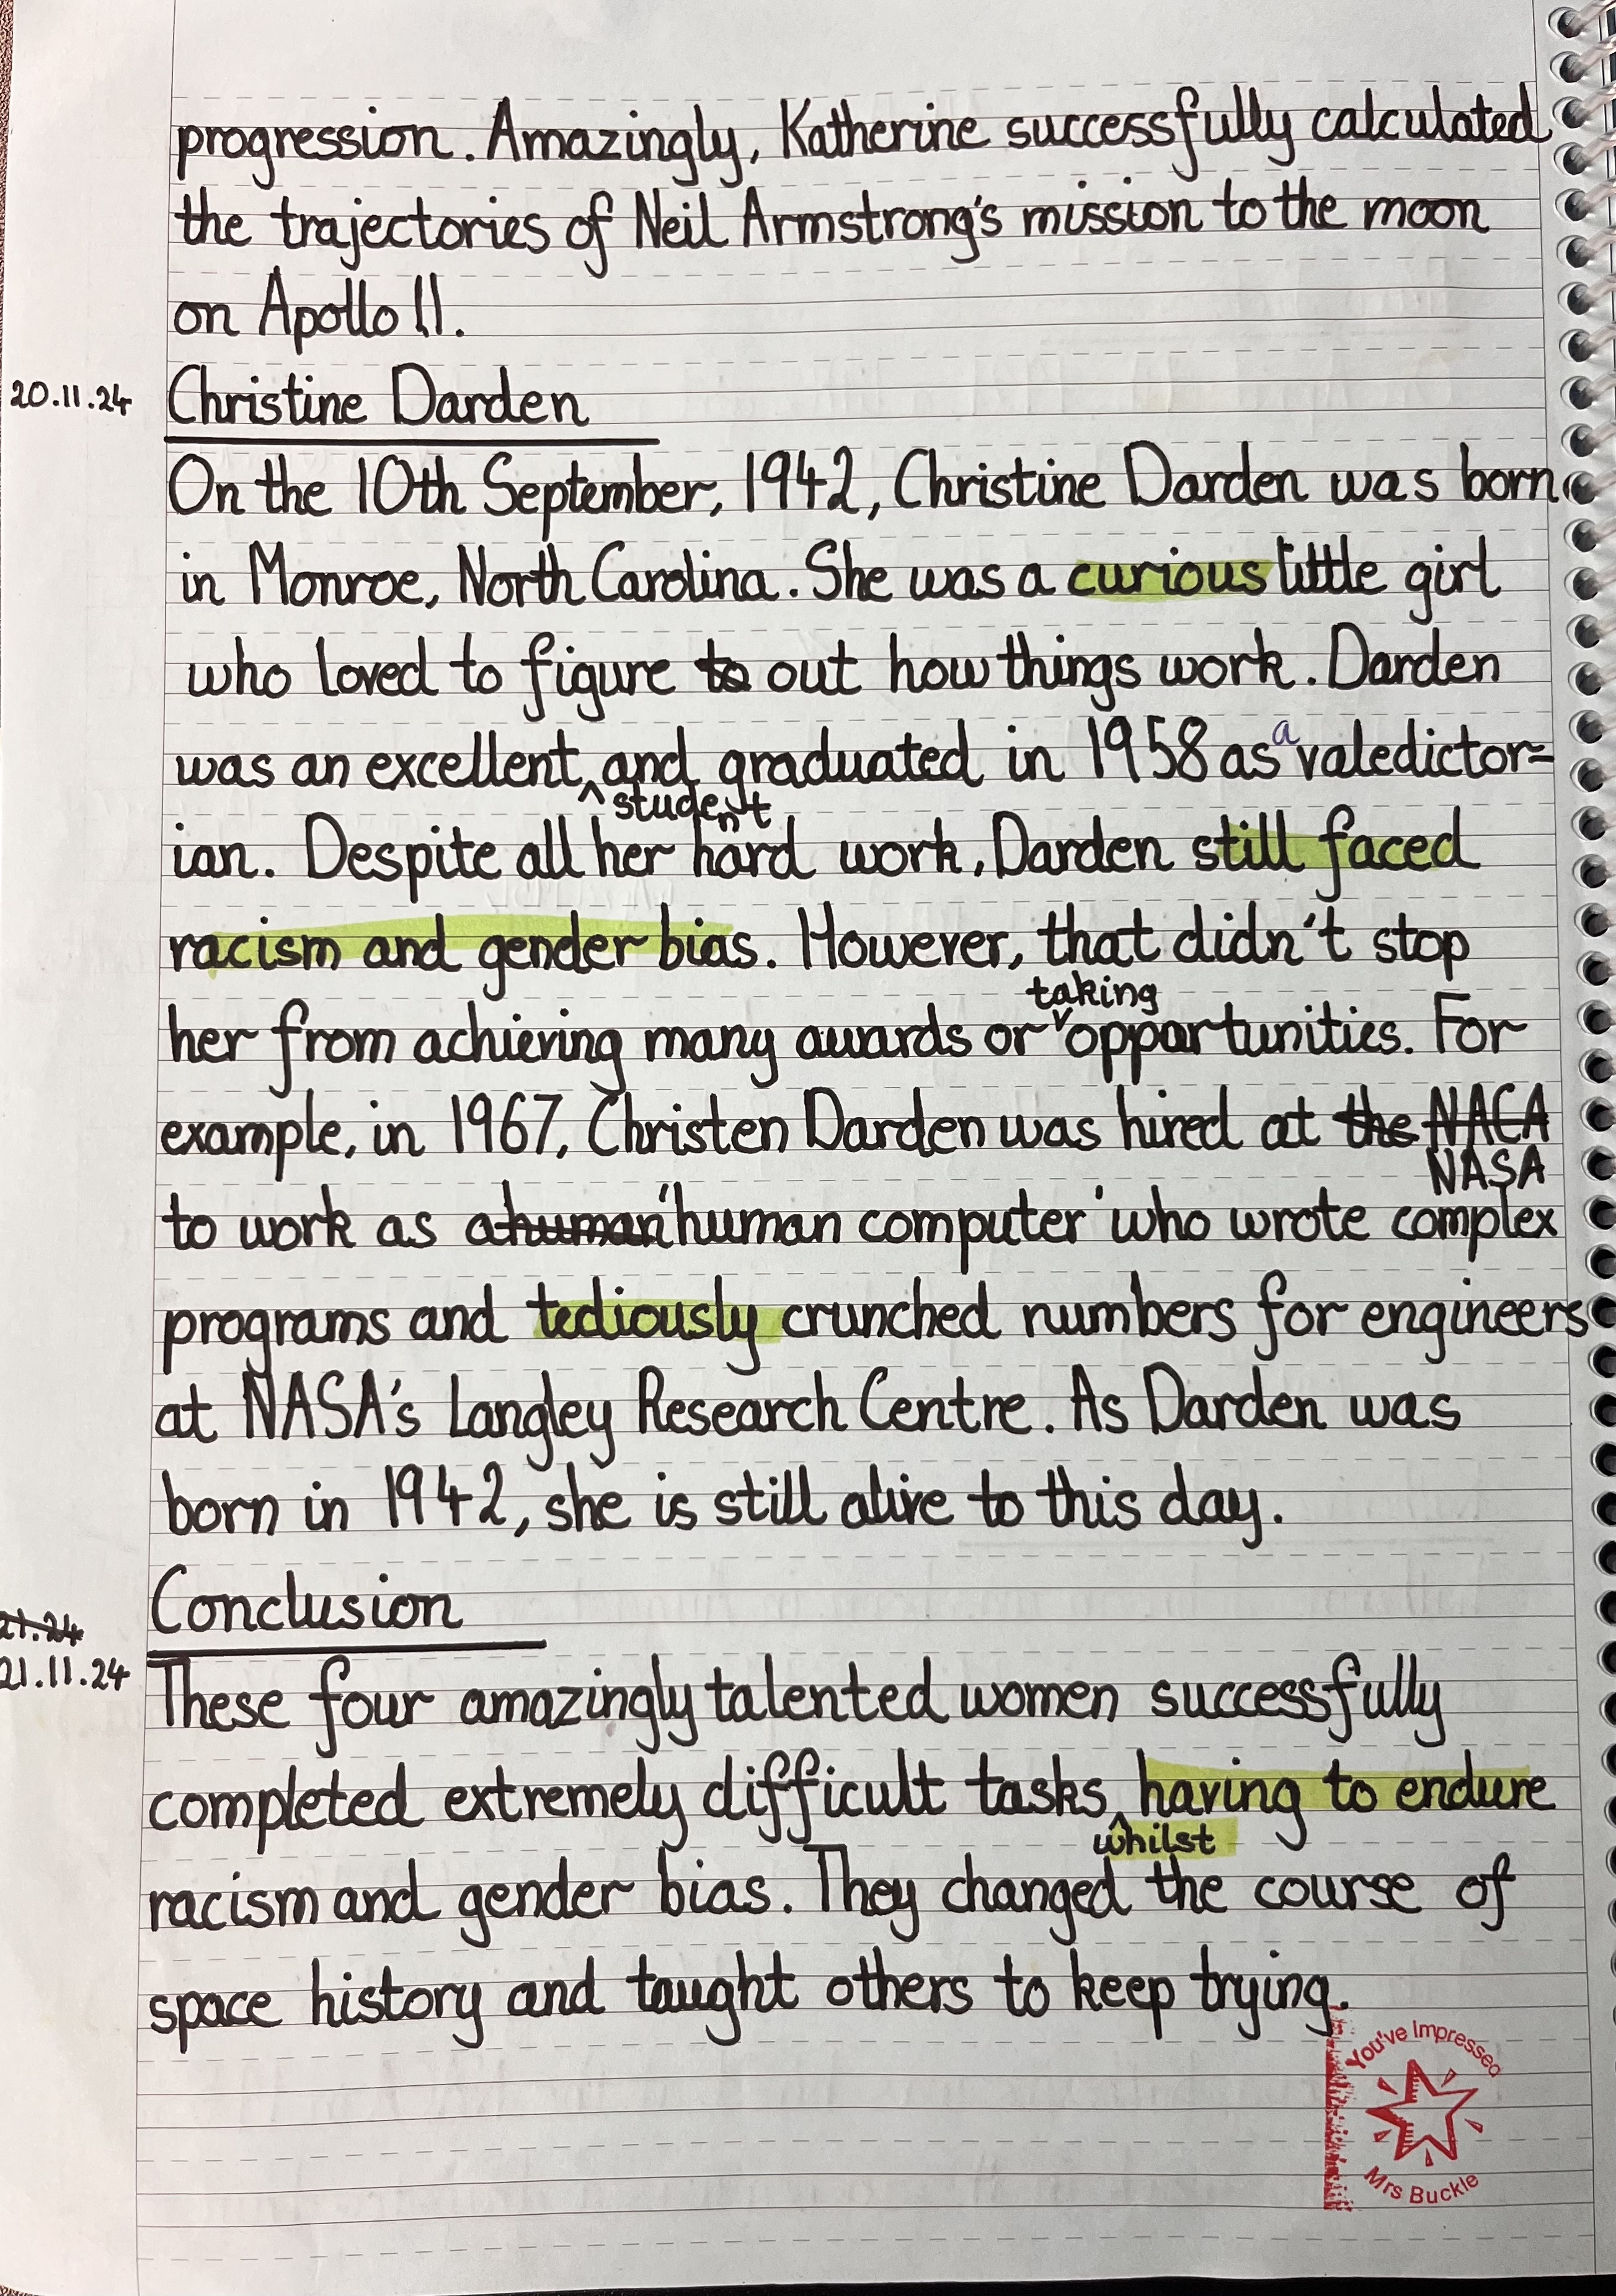 progression. Amazingly, Katherine successfully calculated
the trajectories of Neil Armstrong's mission to the moon
on Apollo 11.
20.11.24 Christine Darden
On the 10th September, 1942, Christine Darden was born
in Monroe, North Carolina. She was a curious little girl
who loved to figure to out how things work. Darden
was an excellent ^ and graduated in 1958 as a valedictor=
student
ian. Despite all her hard work, Darden still faced
racism and gender bias. However, that didn't stop
taking
her from achieving many awards or opportunities. For
example, in 1967, Christen Darden was hired at the NACA
NASA
to work as a human 'human computer' who wrote complex
programs and tediously crunched numbers for engineers
at NASA's Langley Research Centre. As Darden was
born in 1942, she is still alive to this day.
Conclusion
21.24
21.11.24
These four amazingly talented women successfully
completed extremely difficult tasks ^ having to endure
whilst
racism and gender bias. They changed the course of
space history and taught others to keep trying.
You've Impressed
Mrs Buckle